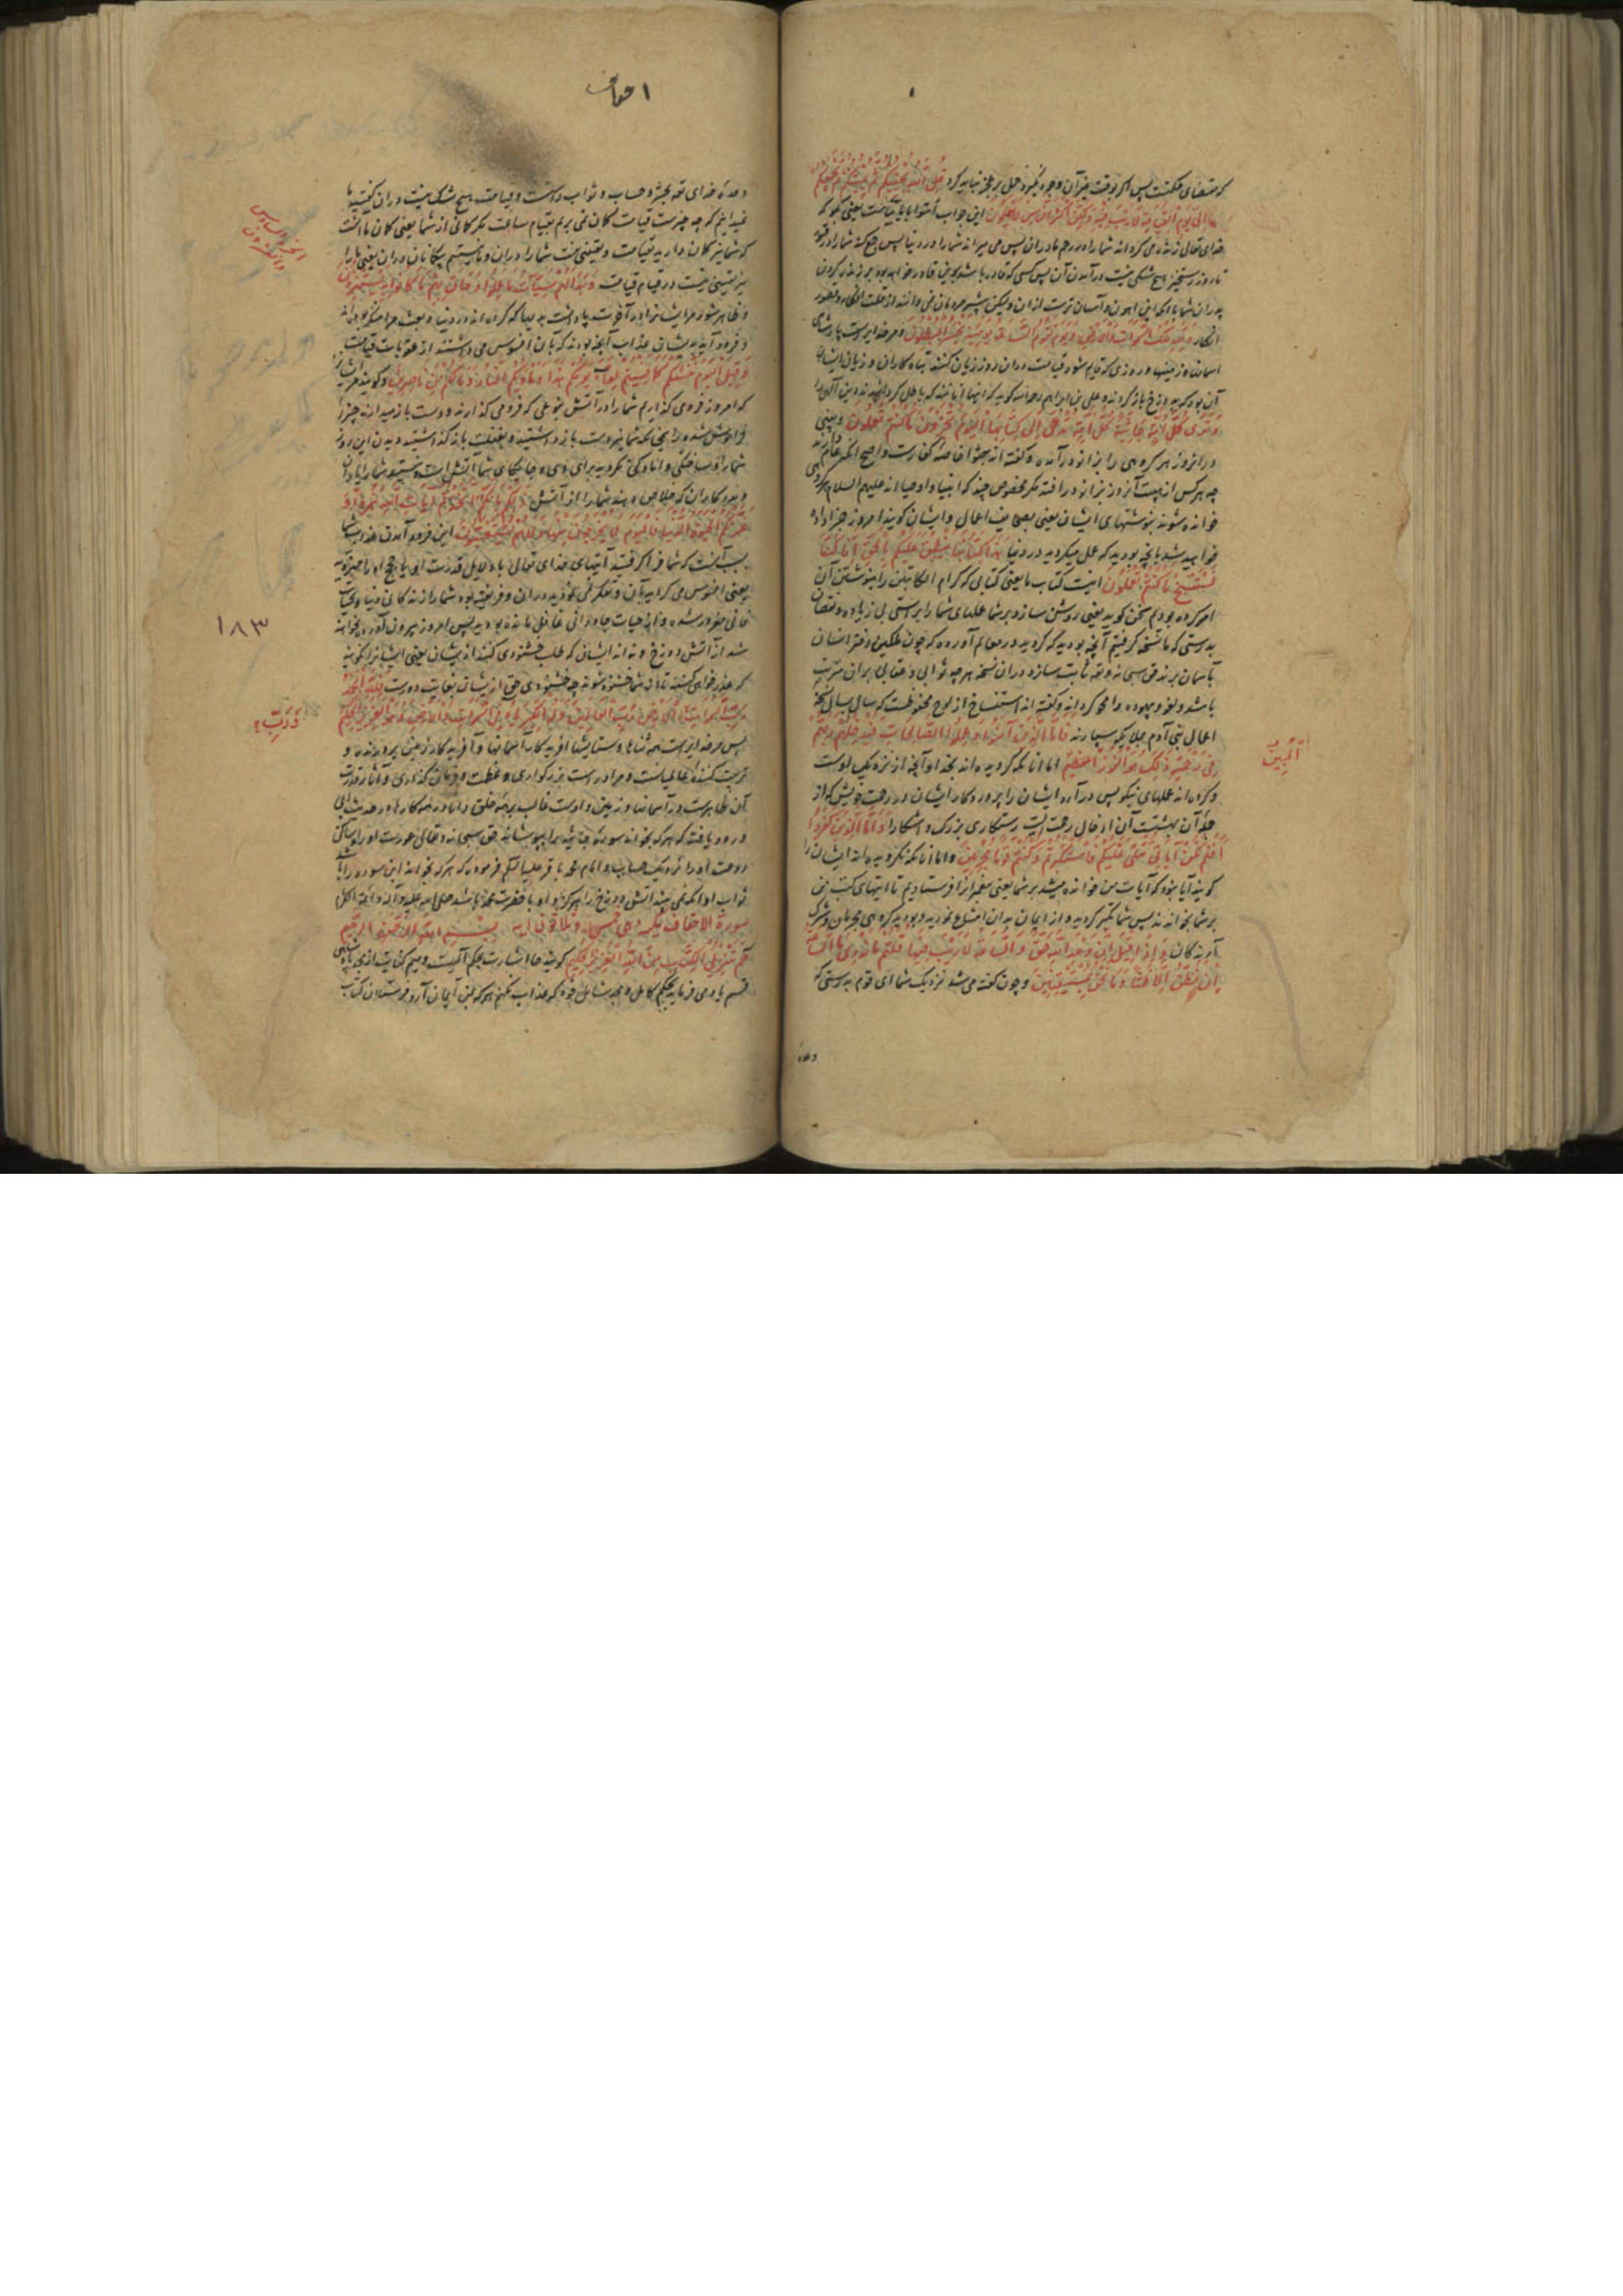 که مقتضای حکمتست پس اگر بوقت غیر آن وجود نگیرد حمل بر عجز نباید کرد قُلِ اللَّهُ يُحْيِيكُمْ ثُمَّ يُمِيتُكُمْ ثُمَّ يَجْمَعُكُمْ
إِلَى يَوْمِ الْقِيٰمَةِ لَا رَيْبَ فِيهِ وَلَكِنَّ أَكْثَرَ النَّاسِ لَا يَعْلَمُونَ این جواب ائتوا بآبائناست یعنی بگو که
خدای تعالی زنده می گرداند شما را در رحم مادران پس می میراند شما را در دنیا پس جمع کند شما را در قبور
تا روز رستخیز هیچ شکی نیست در آمدن آن پس کسی که قادر باشد برین قادر خواهد بود بر زنده کردن
پدران شما با آنکه این اهون و آسان ترست از آن ولیکن بیشتر مردمان نمی دانند از قلت افکار و قصور
انظار وَلِلَّهِ مُلْكُ السَّمٰوَاتِ وَالْأَرْضِ وَيَوْمَ تَقُومُ السَّاعَةُ يَوْمَئِذٍ يَخْسَرُ الْمُبْطِلُونَ و مر خدایراست پادشاهی
آسمانها و زمینها و روزی که قایم شود قیامت در آن روز زیان کنند تباه کاران و زیان ایشان
آن بود که بدوزخ باز گردند و علی بن ابراهیم رحمه الله گوید که اینها آنانند که باطل گردانیدند دین الهی را
وَتَرَى كُلَّ أُمَّةٍ جَاثِيَةً كُلُّ أُمَّةٍ تُدْعَى إِلَى كِتَابِهَا الْيَوْمَ تُجْزَوْنَ مَا كُنْتُمْ تَعْمَلُونَ و بینی
در آنروز هر گروهی را بزانو در آمده و گفته اند جثو خاصه کفارست و اصح آنکه عام دارند
چه هر کس از هیبت آنروز بزانو در افتد مگر مخصوصی چند که انبیا و اوصیا اند علیهم السلام هر گروهی
خوانده شوند بنوشتهای ایشان یعنی بصحایف اعمال و ایشان گویند امروز جزا داده
خواهید شد بآنچه بودید که عمل میکردید در دنیا هَذَا كِتَابُنَا يَنْطِقُ عَلَيْكُمْ بِالْحَقِّ إِنَّا كُنَّا
نَسْتَنْسِخُ مَا كُنْتُمْ تَعْمَلُونَ اینست کتاب ما یعنی کتابی که کرام الکاتبین را بنوشتن آن
امر کرده بودم سخن گوید یعنی روشن سازد بر شما عملهای شما را براستی بی زیاده و نقصان
بدرستی که ما نسخه گرفتیم آنچه بودید که کردید در معالم آورده که چون ملکین دفتر انسان
بآسمان برند حق سبحانه و تعالی ثابت سازد در آن نسخه هر چه ثوابی و عقابی بر آن مترتب
باشد و لغو و بیهوده را محو گرداند و گفته اند استنساخ از لوح محفوظست که سال بسال نسخه
اعمال بنی آدم بملایکه سپارند فَأَمَّا الَّذِينَ آمَنُوا وَعَمِلُوا الصَّالِحَاتِ فَيُدْخِلُهُمْ رَبُّهُمْ
فِي رَحْمَتِهِ ذَلِكَ هُوَ الْفَوْزُ الْعَظِيمُ اما آنانکه گرویده اند بخدا و آنچه از نزدیک اوست
و کرده اند عملهای نیکو پس درآرد ایشان را پروردگار ایشان در رحمت خویش که از
جمله آن بهشتست آن ادخال رحمت ایشان رستگاری بزرگ و آشکارا وَأَمَّا الَّذِينَ كَفَرُوا
أَفَلَمْ تَكُنْ آيَاتِي تُتْلَى عَلَيْكُمْ فَاسْتَكْبَرْتُمْ وَكُنْتُمْ قَوْمًا مُجْرِمِينَ و اما آنانکه نگرویده اند ایشان را
گویند آیا نبود که آیات من خوانده میشد بر شما یعنی پیغمبرانرا فرستادیم تا آیتهای کتب من
بر شما بخوانند پس شما تکبر کردید و از ایمان بدان امتناع نمودید و بودید گروهی مجرمان و شرک
آرندگان وَإِذَا قِيلَ إِنَّ وَعْدَ اللَّهِ حَقٌّ وَالسَّاعَةُ لَا رَيْبَ فِيهَا قُلْتُمْ مَا نَدْرِي مَا السَّاعَةُ
إِنْ نَظُنُّ إِلَّا ظَنًّا وَمَا نَحْنُ بِمُسْتَيْقِنِينَ و چون گفته می شد نزدیک شما ای قوم بدرستی که
وعده
الْمُبِينُ
احقاف
وعده خدای تعالی بحشر و حساب و ثواب راست و قیامت هیچ شک نیست در آن گفتید ما
نمیدانیم که چه چیزست قیامت گمان نمی بریم بقیام ساعت مگر گمانی از شما یعنی گمان ما آنست
که شما نیز گمان دارید بقیامت و یقینی نیست شما را در آن و ما نیستیم بیگمانان در آن یعنی ما را
نیز یقینی نیست در قیام قیامت وَبَدَا لَهُمْ سَيِّئَاتُ مَا عَمِلُوا وَحَاقَ بِهِمْ مَا كَانُوا بِهِ يَسْتَهْزِئُونَ
و ظاهر شود مر ایشانرا در آخرت پاداشت بدیها که کرده اند در دنیا و بعث مر امنکر بوده اند
و فرود آید بدیشان عذاب آنچه بودند که بآن افسوس می داشتند از عقوبات قیامت
وَقِيلَ الْيَوْمَ نَنْسٰكُمْ كَمَا نَسِيتُمْ لِقَاءَ يَوْمِكُمْ هَذَا وَمَأْوٰكُمُ النَّارُ وَمَا لَكُمْ مِنْ نَاصِرِينَ و گویند مر ایشانرا
که امروز فرومی گذاریم شما را در آتش بنوعی که فرومی گذارند و دست باز میدارند چیزی
فراموش شده را همچنانکه شما نیز دست باز داشتید و بغفلت باز گذاشتید دیدن این روز
شما را و ساختگی و آمادگی نکردید برای وی و جایگاه شما آتش است و نیست شما را یاران
و مددکاران که خلاص دهند شما را از آتش ذَلِكُمْ بِأَنَّكُمُ اتَّخَذْتُمْ آيَاتِ اللَّهِ هُزُوًا وَ
غَرَّتْكُمُ الْحَيٰوةُ الدُّنْيَا فَالْيَوْمَ لَا يُخْرَجُونَ مِنْهَا وَلَا هُمْ يُسْتَعْتَبُونَ این فرود آمدن عذاب شما
بسبب آنست که شما فرا گرفتید آیتهای خدای تعالی یا دلایل قدرت او یا حجج او را سخریه
یعنی افسوس می کردید بآن و تفکر نمی نمودید در آن و فریفته بود شما را زندگانی دنیا و بحیات
فانی مغرور شده و از حیات جاودانی غافل مانده بودید پس امروز بیرون آورده نخواهند
شد از آتش دوزخ و نه از ایشان که طلب خشنودی کنند از ایشان یعنی ایشانرا نگویند
که عذرخواهی کنند تا از شما خشنود شوند چه خشنودی حق از ایشان بغایت دورست فَلِلَّهِ الْحَمْدُ
رَبِّ السَّمٰوَاتِ وَرَبِّ الْأَرْضِ رَبِّ الْعَالَمِينَ وَلَهُ الْكِبْرِيَاءُ فِي السَّمٰوَاتِ وَالْأَرْضِ وَهُوَ الْعَزِيزُ الْحَكِيمُ
پس مر خدایراست همه ثناها و ستایشها آفریدگار آسمانها و آفریدگار زمین پرورنده و
تربیت کننده عالمیانست و مر او راست بزرگواری و عظمت و فرمان گذاری و آثار قدرت
آن ظاهرست در آسمانها و زمین و اوست غالب بر همه خلق و دانا در همه کارها و در حدیث ابی
ورود یافته که هر که بخواند سوره جاثیه را بپوشاند حق سبحانه و تعالی عورت او را و ساکن
روعت او را نزدیک حساب و امام محمد باقر علیه السلام فرموده که هر که بخواند این سوره را باشد
ثواب او آنکه نمی بیند آتش دوزخ را هرگز و او با حضرت محمد باشد صلی الله علیه و آله و ائمة الکل
سورة الاحقاف مکیة و هی خمس و ثلاثون آیة بِسْمِ اللَّهِ الرَّحْمَنِ الرَّحِيمِ
حم تَنْزِيلُ الْكِتَابِ مِنَ اللَّهِ الْعَزِيزِ الْحَكِيمِ گویند حا اشارت بحکم الهیست و میم کنایت از مجد پادشاهی
قسم یاد می فرماید بحکم کامل و مجد شامل خود که عذاب نکنم هر که بمن ایمان آرد و فرستادن کتاب
الجزء السادس
والعشرون
١٨٣
وَرَبِّ